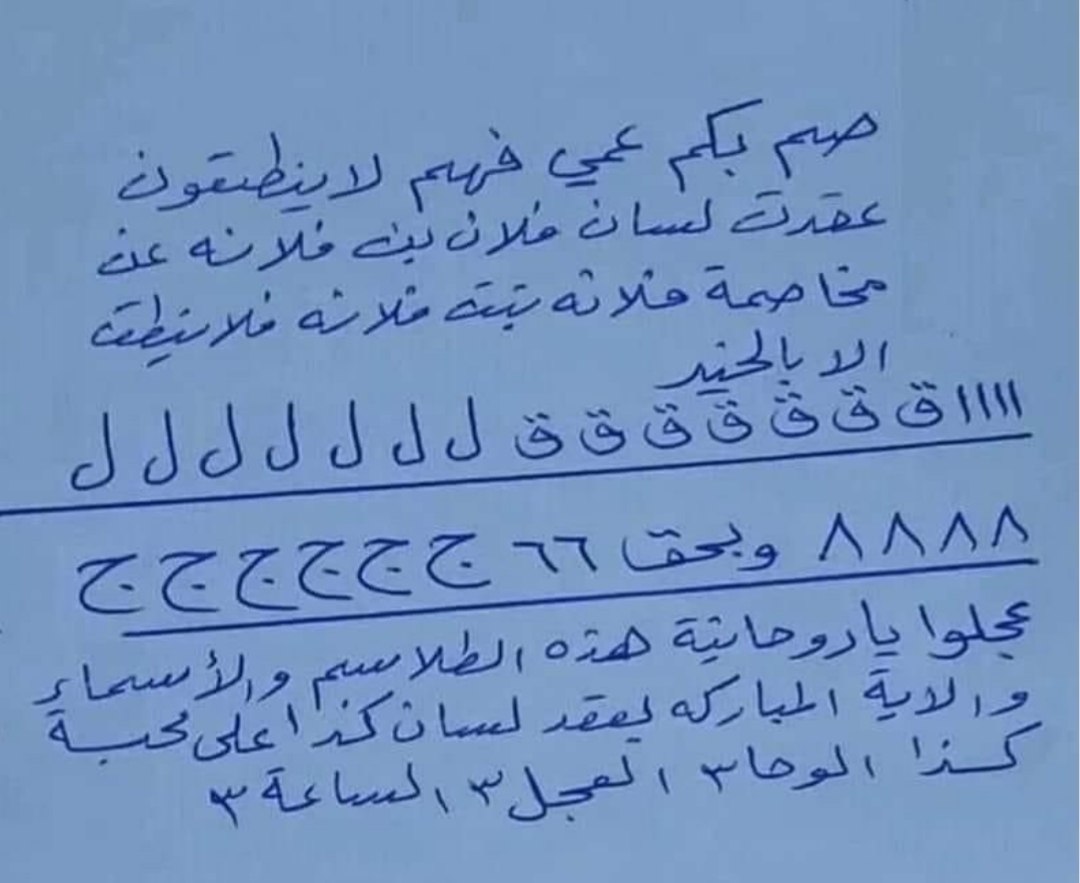 صم بكم عمي فهم لاينطقون
عقدت لسان فلان بن فلانه عن
مخاصمة فلانه بنت فلانه فلاينطق
الا بالخير
اااا ق ق ق ق ق ق ق ل ل ل ل ل ل ل
٨٨٨٨ وبحق ٦٦ ج ج ج ج ج ج
عجلوا ياروحانية هذه الطلاسم والأسماء
والاية المباركه بعقد لسان كذا على محبة
كذا الوحا٣ العجل٣ الساعة٣